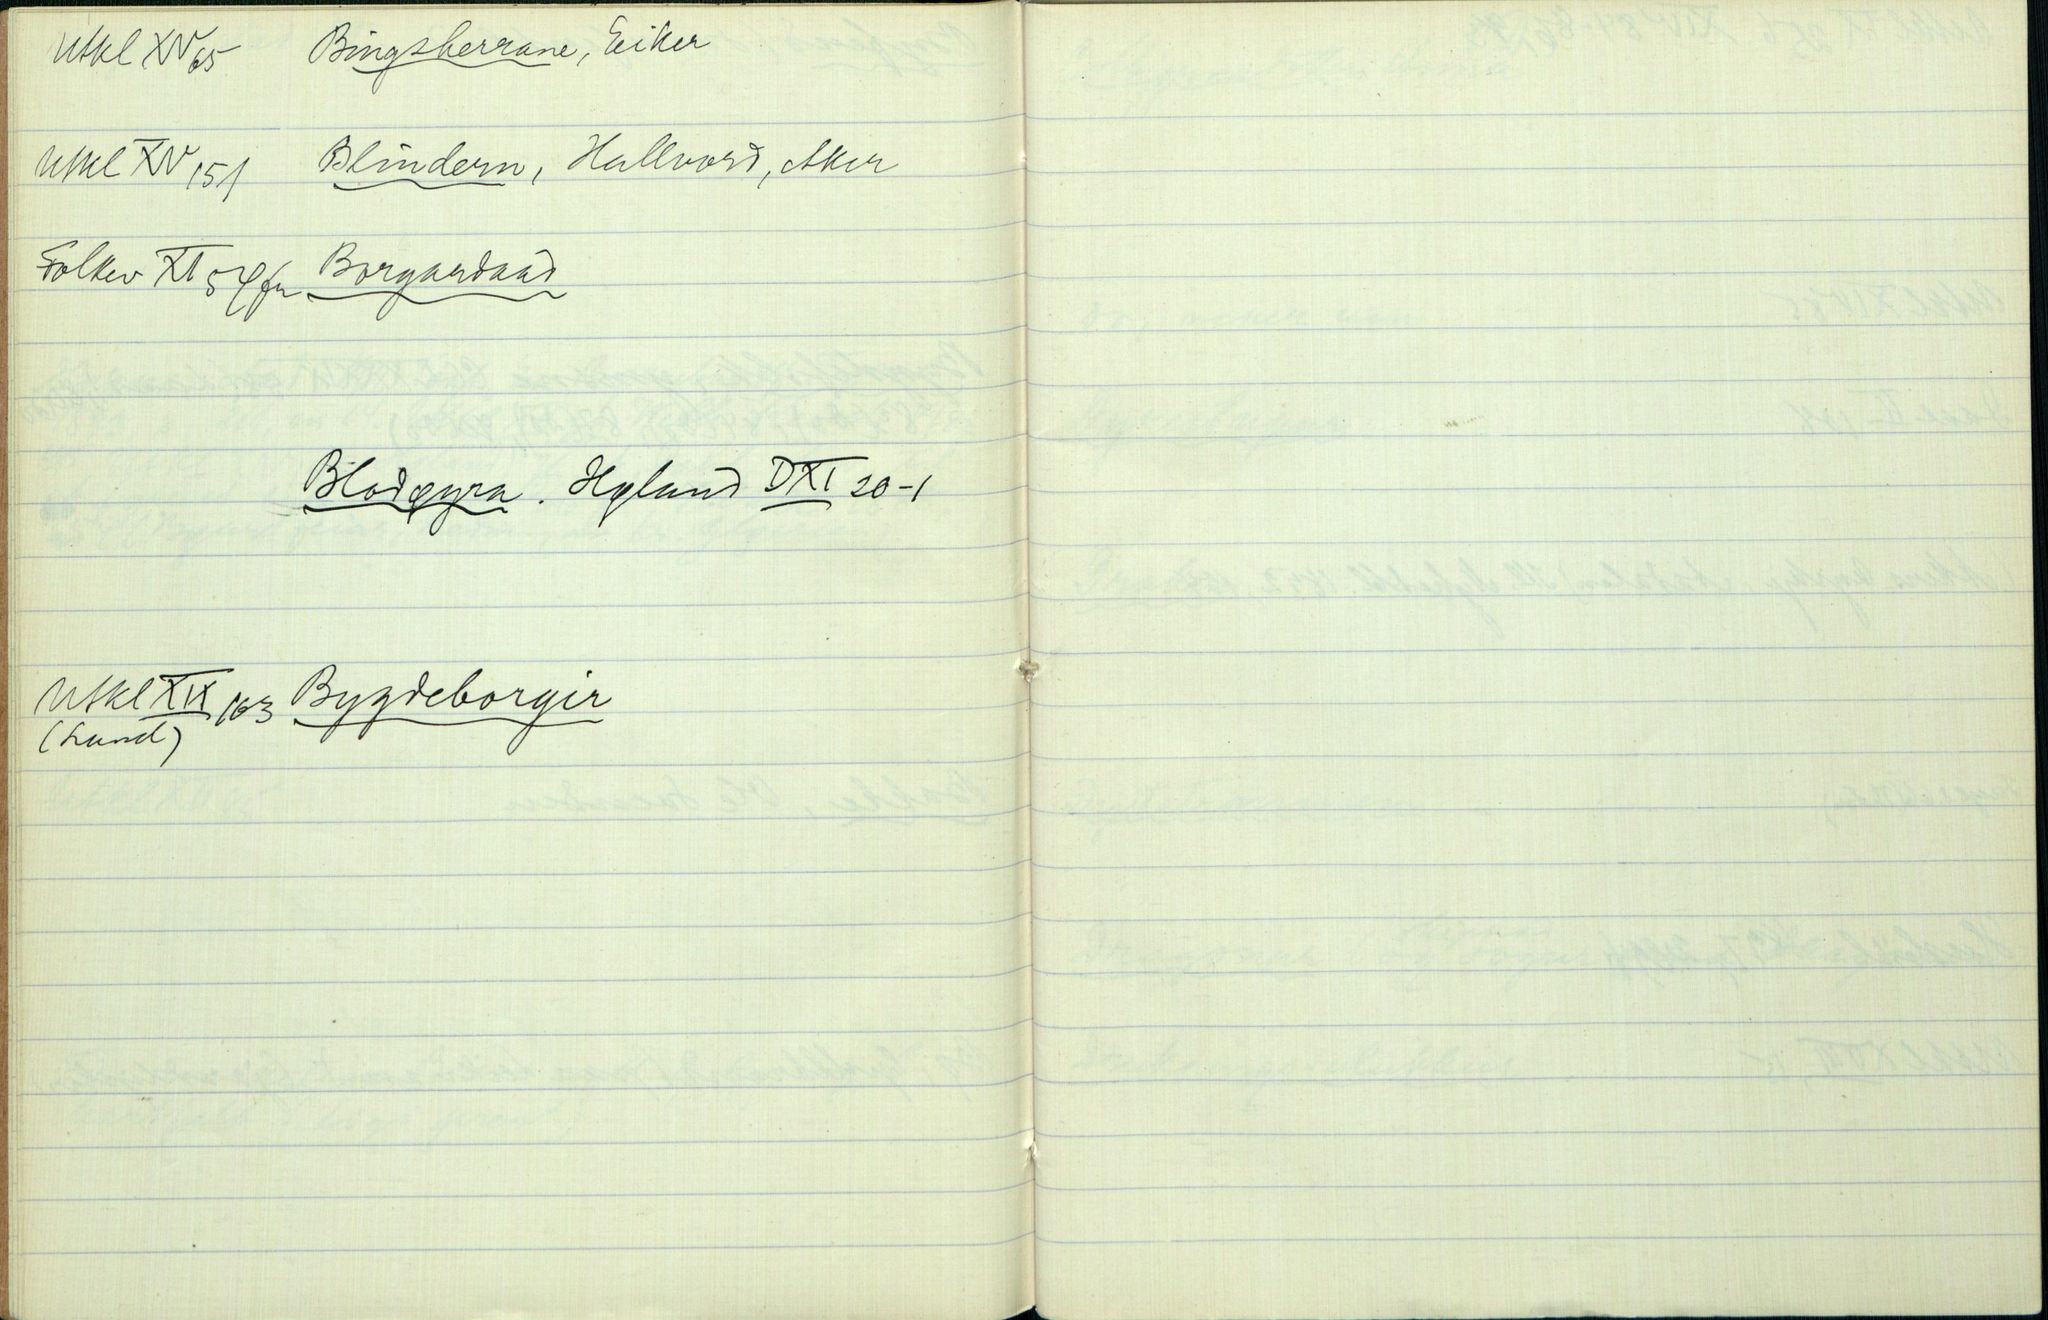 Utkl XV 65 Bingsherrane, Eiker
Utkl XV 151 Blindern, Hallvard, Aker
Folkev XI Borgardaad
Blodøyra. Høland DXI 20-1
Utkl XIX 163 Bygdeborgir
(Lund)